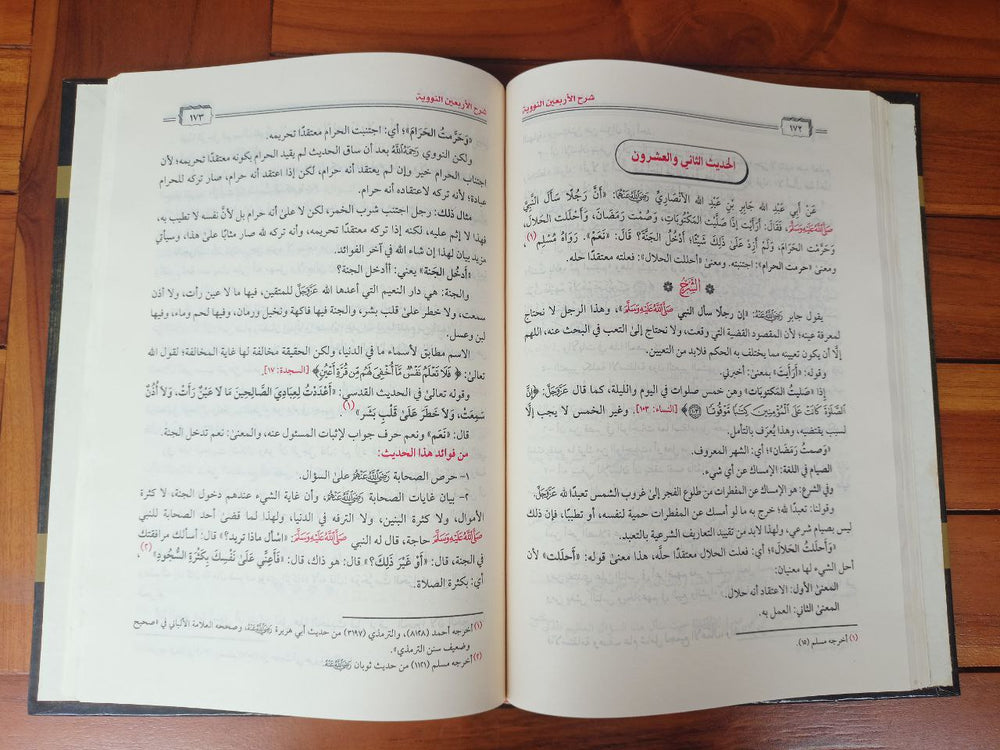 شرح الأربعين النووية
١٧٢
الحديث الثاني والعشرون
عَنْ أَبِي عَبْدِ اللهِ جَابِرِ بْنِ عَبْدِ اللهِ الأَنْصَارِيِّ رَضِيَ اللَّهُ عَنْهُمَا: «أَنَّ رَجُلًا سَأَلَ النَّبِيَّ
صَلَّى اللَّهُ عَلَيْهِ وَسَلَّمَ، فَقَالَ: أَرَأَيْتَ إِذَا صَلَّيْتُ المَكْتُوبَاتِ، وَصُمْتُ رَمَضَانَ، وَأَحْلَلْتُ الحَلَالَ،
وَحَرَّمْتُ الحَرَامَ، وَلَمْ أَزِدْ عَلَىٰ ذَلِكَ شَيْئًا؛ أَدْخُلُ الجَنَّةَ؟ قَالَ: «نَعَمْ». رَوَاهُ مُسْلِم (١)،
ومعنىٰ «حرمت الحرام»: اجتنبته. ومعنىٰ «أحللت الحلال»: فعلته معتقدًا حله.
الشَّرْحُ
يقول جابر رَضِيَ اللَّهُ عَنْهُ: «إن رجلًا سأل النبي صَلَّى اللَّهُ عَلَيْهِ وَسَلَّمَ»، وهذا الرجل لا نحتاج
لمعرفة عينه؛ لأن المقصود القضية التي وقعت، ولا نحتاج إلىٰ التعب في البحث عنه، اللهم
إلَّا أن يكون تعيينه مما يختلف به الحكم فلابد من التعيين.
وقوله: «أَرَأَيتَ» بمعنىٰ: أخبرني.
إِذَا «صَليتُ المَكتوبَاتِ» وهن خمس صلوات في اليوم والليلة، كما قال عَزَّ وَجَلَّ: ﴿إِنَّ
الصَّلَاةَ كَانَتْ عَلَى الْمُؤْمِنِينَ كِتَابًا مَوْقُوتًا ١٠٣﴾ [النساء: ١٠٣]. وغير الخمس لا يجب إلَّا
لسبب يقتضيه، وهذا يُعرَف بالتأمل.
«وَصُمتُ رَمَضَان»؛ أي: الشهر المعروف.
الصيام في اللغة: الإمساك عن أي شيء.
وفي الشرع: هو الإمساك عن المفطرات من طلوع الفجر إلىٰ غروب الشمس تعبدًا لله عَزَّ وَجَلَّ.
وقولنا: تعبدًا لله؛ خرج به ما لو أمسك عن المفطرات حمية لنفسه، أو تطببًا، فإن ذلك
ليس بصيام شرعي، ولهذا لابد من تقييد التعاريف الشرعية بالتعبد.
«وَأَحلَلتُ الحَلَالَ»؛ أي: فعلت الحلال معتقدًا حلَّه، هذا معنىٰ قوله: «أَحلَلت» لأن
أحل الشيء لها معنيان:
المعنىٰ الأول: الاعتقاد أنه حلال.
المعنىٰ الثاني: العمل به.
(١) أخرجه مسلم (١٥).
شرح الأربعين النووية
١٧٣
«وَحَرَّمتُ الحَرَامَ»؛ أي: اجتنبت الحرام معتقدًا تحريمه.
ولكن النووي رَحِمَهُ اللَّهُ بعد أن ساق الحديث لم يقيد الحرام بكونه معتقدًا تحريمه؛ لأن
اجتناب الحرام خير وإن لم يعتقد أنه حرام، لكن إذا اعتقد أنه حرام، صار تركه للحرام
عبادة؛ لأنه تركه لاعتقاده أنه حرام.
مثال ذلك: رجل اجتنب شرب الخمر، لكن لا علىٰ أنه حرام بل لأنَّ نفسه لا تطيب به،
فهذا لا إثم عليه، لكنه إذا تركه معتقدًا تحريمه، وأنه تركه لله صار مثابًا علىٰ هذا، وسيأتي
مزيد بيان لهذا إن شاء الله في آخر الفوائد.
«أَدخُل الجَنة» يعني: أأدخل الجنة؟
والجنة: هي دار النعيم التي أعدها الله عَزَّ وَجَلَّ للمتقين، فيها ما لا عين رأت، ولا أذن
سمعت، ولا خطر علىٰ قلب بشر، والجنة فيها فاكهة ونخيل ورمان، وفيها لحم وماء، وفيها
لبن وعسل.
الاسم مطابق لأسماء ما في الدنيا، ولكن الحقيقة مخالفة لها غاية المخالفة؛ لقول الله
تعالىٰ: ﴿فَلَا تَعْلَمُ نَفْسٌ مَّا أُخْفِيَ لَهُم مِّن قُرَّةِ أَعْيُنٍ﴾ [السجدة: ١٧].
وقوله تعالىٰ في الحديث القدسي: «أَعْدَدْتُ لِعِبَادِي الصَّالِحِينَ مَا لَا عَيْنٌ رَأَتْ، وَلَا أُذُنٌ
سَمِعَتْ، وَلَا خَطَرَ عَلَىٰ قَلْبِ بَشَر» (١)
قال: «نَعَم» ونعم حرف جواب لإثبات المسئول عنه، والمعنىٰ: نعم تدخل الجنة.
من فوائد هذا الحديث:
١- حرص الصحابة رَضِيَ اللَّهُ عَنْهُمْ علىٰ السؤال.
٢- بيان غايات الصحابة رَضِيَ اللَّهُ عَنْهُمْ، وأن غاية الشيء عندهم دخول الجنة، لا كثرة
الأموال، ولا كثرة البنين، ولا الترفه في الدنيا، ولهذا لما قضىٰ أحد الصحابة للنبي
صَلَّى اللَّهُ عَلَيْهِ وَسَلَّمَ حاجة، قال له النبي صَلَّى اللَّهُ عَلَيْهِ وَسَلَّمَ: «اسْأَل ماذا تريد؟» قال: أسألك مرافقتك
في الجنة، قال: «أَوْ غَيْرَ ذَلِكَ؟» قال: هو ذاك، قال: «فَأَعِنِّي عَلَىٰ نَفْسِكَ بِكَثْرَةِ السُّجُودِ» (٢)،
أي: بكثرة الصلاة.
(١) أخرجه أحمد (٨١٢٨)، والترمذي (٣١٩٧) من حديث أبي هريرة رَضِيَ اللَّهُ عَنْهُ، وصححه العلامة الألباني في «صحيح
وضعيف سنن الترمذي».
(٢) أخرجه مسلم (١١٢١) من حديث ثوبان رَضِيَ اللَّهُ عَنْهُ.